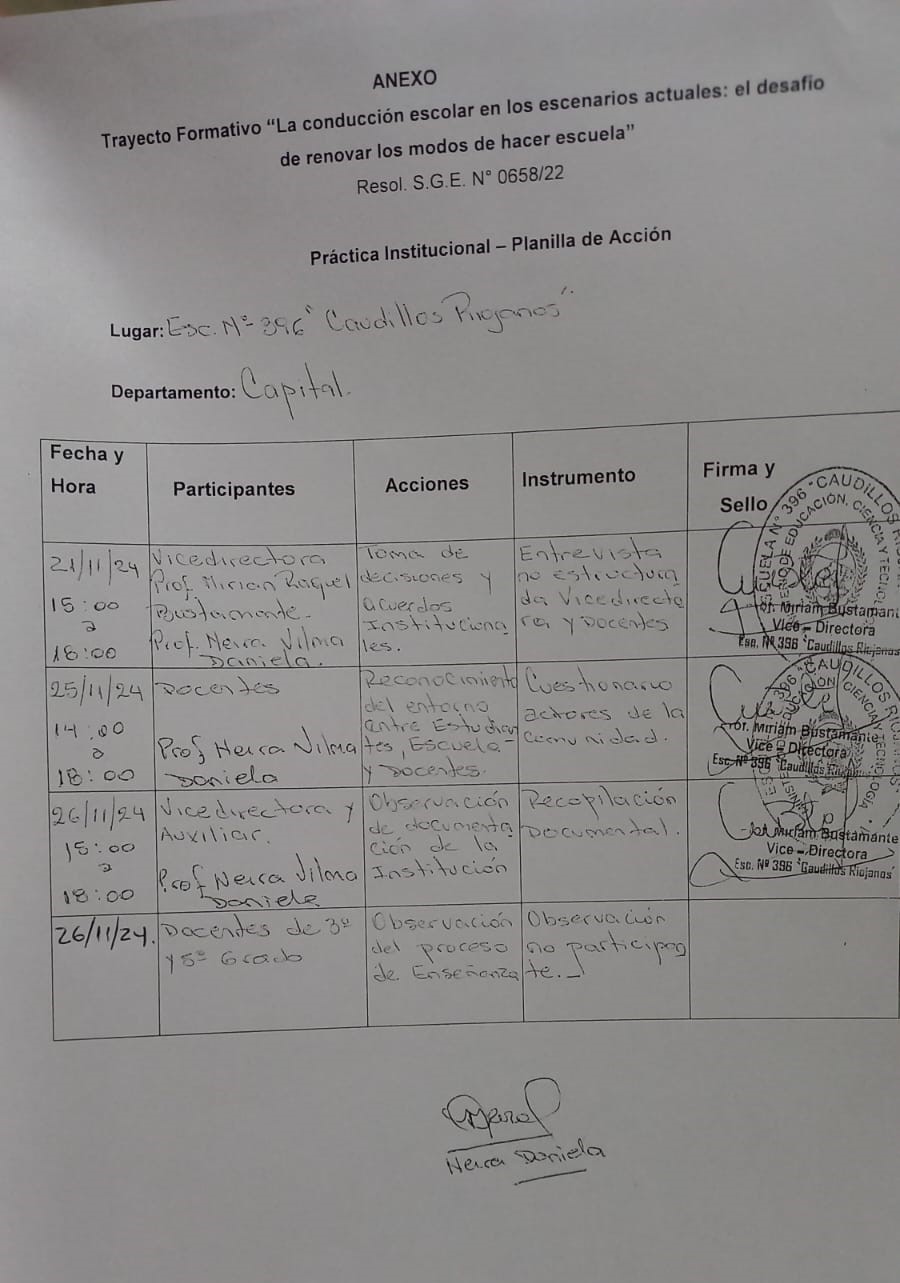 ANEXO
Trayecto Formativo “La conducción escolar en los escenarios actuales: el desafío
de renovar los modos de hacer escuela”
Resol. S.G.E. N° 0658/22
Práctica Institucional – Planilla de Acción
Lugar: Esc. Nº 396 "Caudillos Riojanos"
Departamento: Capital.
Fecha y
Hora
Participantes
Acciones
Instrumento
Firma y
Sello
21/11/24
15:00
a
18:00
Vicedirectora
Prof. Mirian Raquel
Bustamante.
Prof. Neira Vilma
Daniela.
Toma de
decisiones y
acuerdos
Instituciona
les.
Entrevista
no estructura
da Vicedirecto
ra y Docentes
ESCUELA Nº 396 "CAUDILLOS
EDUCACIÓN, CIENCIA Y TECNO
Miriam Bustaman
Vice – Directora
Esc. Nº 396 "Caudillos Riojanos
25/11/24
14:00
a
18:00
Docentes
Prof Neira Vilma
Daniela
Reconocimiento
del entorno
entre Estudian
tes, Escuela-
y Docentes.
Cuestionario
actores de la
Comunidad.
396 "CAUDILLOS
CIENCIA TECNOLOGÍA
Miriam Bustamante
Vice – Directora
Esc. Nº 396 "Caudillos
26/11/24
15:00
a
18:00
Vicedirectora y
Auxiliar.
Prof Neira Vilma
Daniela
Observación
de documenta
ción de la
Institución
Recopilación
Documental.
Miriam Bustamante
Vice – Directora
Esc. Nº 396 "Caudillos Riojanos"
26/11/24.
Docentes de 3º
y 5º Grado
Observación
del proceso
de Enseñanza
Observación
no participan
te.
Neira Daniela